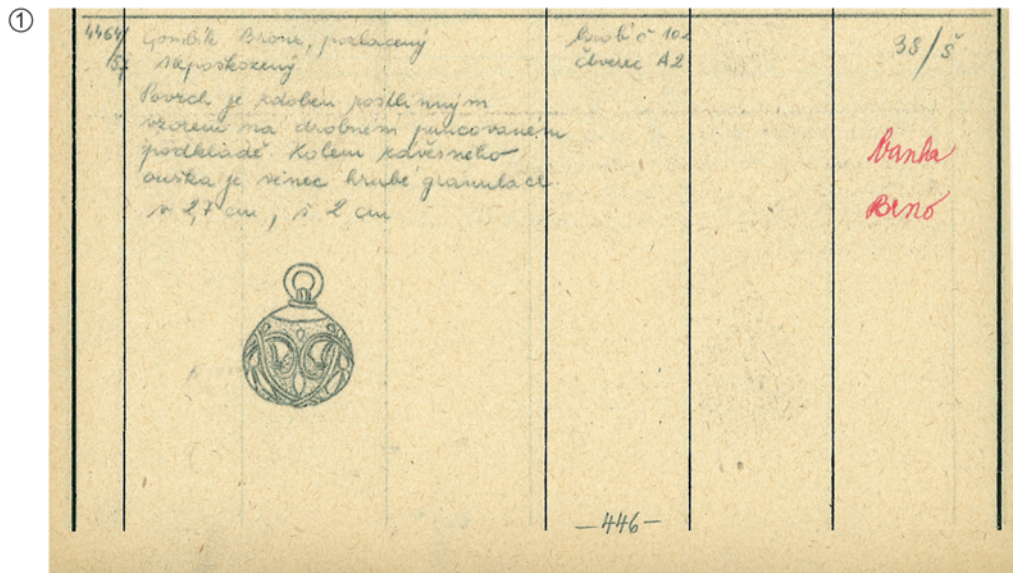 ①
4464/57 Gombík Bronz, pozlacený
nepoškozený
Povrch je zdoben rostlinným
vzorem na drobném puncovaném
podkladě. Kolem závěsného
ouška je věnec hrubé granulace.
v. 2,7 cm, š. 2 cm
hrob č 102
čtverec A2
38/Š
banka
Brno
—446—